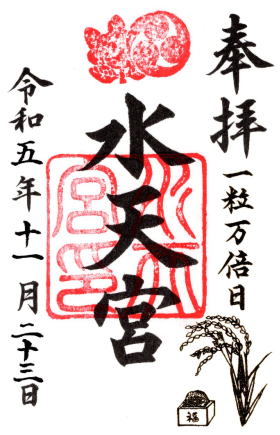 奉拝
一粒万倍日
水天宮
水天宮印
令和五年十一月二十三日
福